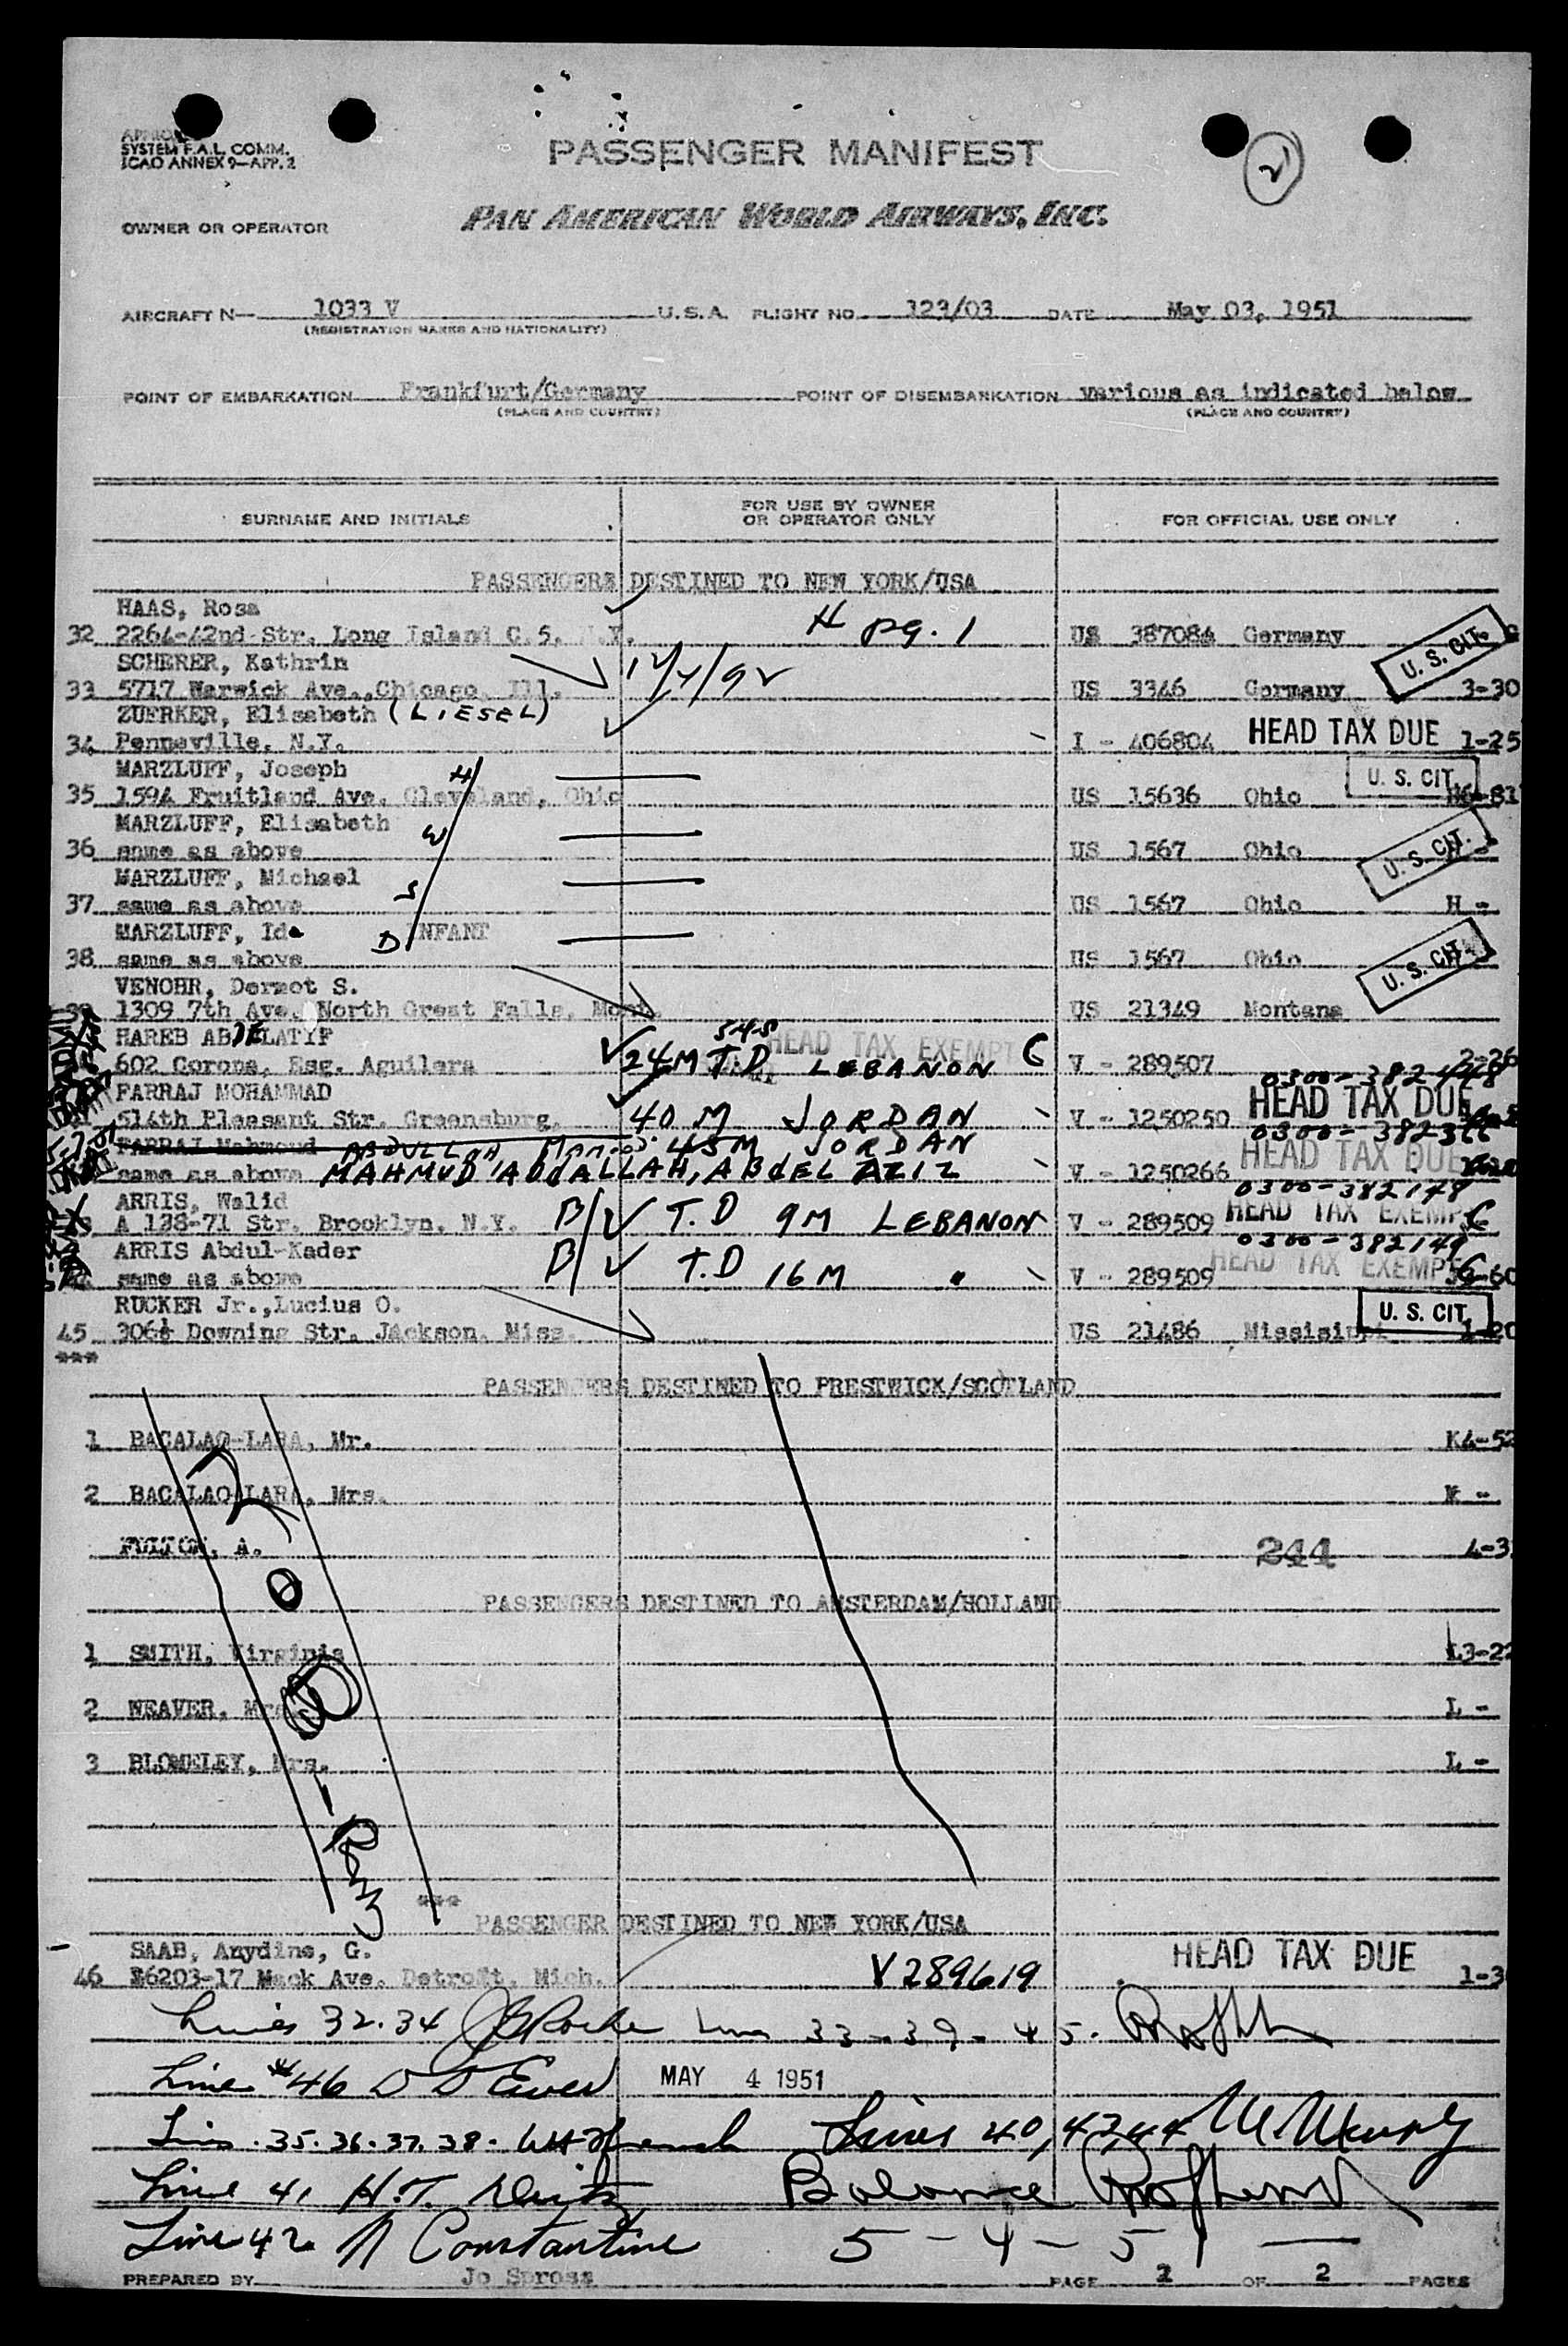 SYSTEM F.A.L. COMM.
ICAO ANNEX 9—APP. 2
PASSENGER MANIFEST
2
OWNER OR OPERATOR
PAN AMERICAN WORLD AIRWAYS, INC.
AIRCRAFT N— 1033 V U.S.A. FLIGHT NO. 123/03 DATE May 03, 1951
(REGISTRATION MARKS AND NATIONALITY)
POINT OF EMBARKATION Frankfurt/Germany POINT OF DISEMBARKATION various as indicated below
(PLACE AND COUNTRY) (PLACE AND COUNTRY)
SURNAME AND INITIALS FOR USE BY OWNER OR OPERATOR ONLY FOR OFFICIAL USE ONLY
PASSENGERS DESTINED TO NEW YORK/USA
HAAS, Rosa
32 2264-42nd Str. Long Island C. N.Y. pg. 1 US 387084 Germany U. S. CIT.
SCHERER, Kathrin
33 5717 Warwick Ave., Chicago, Ill. US 3346 Germany 3-30
ZUERKER, Elisabeth (LIESEL)
34 Penneville, N.Y. I - 406804 HEAD TAX DUE 1-25
MARZLUFF, Joseph H
35 1594 Fruitland Ave. Cleveland, Ohio US 15636 Ohio U. S. CIT.
MARZLUFF, Elisabeth W
36 same as above US 1567 Ohio U. S. CIT.
MARZLUFF, Michael S
37 same as above US 1567 Ohio H -
MARZLUFF, Ida INFANT D
38 same as above US 1567 Ohio U. S. CIT.
VENOHR, Dermot S.
1309 7th Ave. North Great Falls, Mont. US 21349 Montana
HAREB ABDELATIF
602 Corona, Esg. Aguilera 24M T.D LEBANON HEAD TAX EXEMPT C V - 289507 2-26
FARRAJ MOHAMMAD 0300-382448
514th Pleasant Str. Greensburg, 40 M JORDAN V - 1250250 HEAD TAX DUE
FARRAJ Mahmoud ABDULLAH 45M JORDAN 0300-382366
same as above MAHMUD ABDALLAH, ABDEL AZIZ V - 1250266 HEAD TAX DUE
ARRIS, Walid 0300-382148
A 138-71 Str. Brooklyn, N.Y. B/ T.D 9M LEBANON V - 289509 HEAD TAX EXEMPT C
ARRIS Abdul-Kader 0300-382149
same as above B/ T.D 16M " V - 289509 HEAD TAX EXEMPT C
RUCKER Jr., Lucius O.
45 306½ Downing Str. Jackson, Miss. US 21486 Missisippi U. S. CIT. 1-20
***
PASSENGERS DESTINED TO PRESTWICK/SCOTLAND
1 BACALAO-LARA, Mr. K4-52
2 BACALAO-LARA, Mrs. K -
FULTON, A. 244 4-3
PASSENGERS DESTINED TO AMSTERDAM/HOLLAND
1 SMITH, Virginia L3-22
2 WEAVER, Mrs. L -
3 BLOMELEY, Mrs. L -
***
PASSENGER DESTINED TO NEW YORK/USA
SAAB, Anydine, G.
46 16203-17 Mack Ave. Detroit, Mich. V289619 HEAD TAX DUE 1-3
Lines 32.34 Lines 33-39-45.
Line #46 MAY 4 1951
Lines 35.36.37.38. Lines 40,43,44
Line 41 H.T. Balance
Line 42 N Constantine 5-4-51
PREPARED BY Jo Spross PAGE 2 OF 2 PAGES